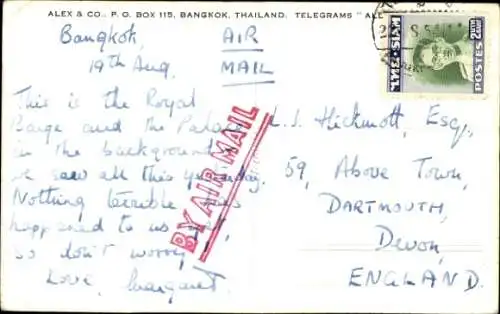 ALEX & CO., P. O. BOX 115, BANGKOK, THAILAND. TELEGRAMS "ALE
Bangkok,
19th Aug.
AIR
MAIL
This is the Royal
Barge and the Palace
in the background,
we saw all this yesterday.
Nothing terrible has
happened to us yet,
so don't worry,
Love, Margaret.
BY AIR MAIL
L.J. Hickmott, Esq.,
59, Above Town,
DARTMOUTH,
Devon,
ENGLAND.
SIAM
POSTES